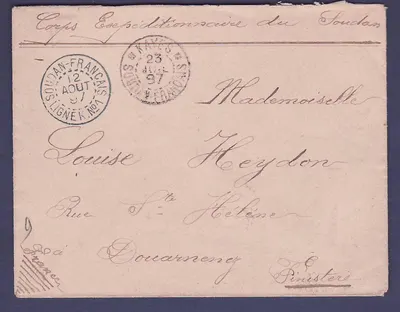 Corps Expéditionnaire du Soudan
SOUDAN-FRANCAIS
12
AOUT
97
LIGNE K. No 1
KAYES
23
97
SOUDAN FRANCAIS
Mademoiselle
Louise Heydon
Rue Ste Hélène
Douarneng
Finistère
France